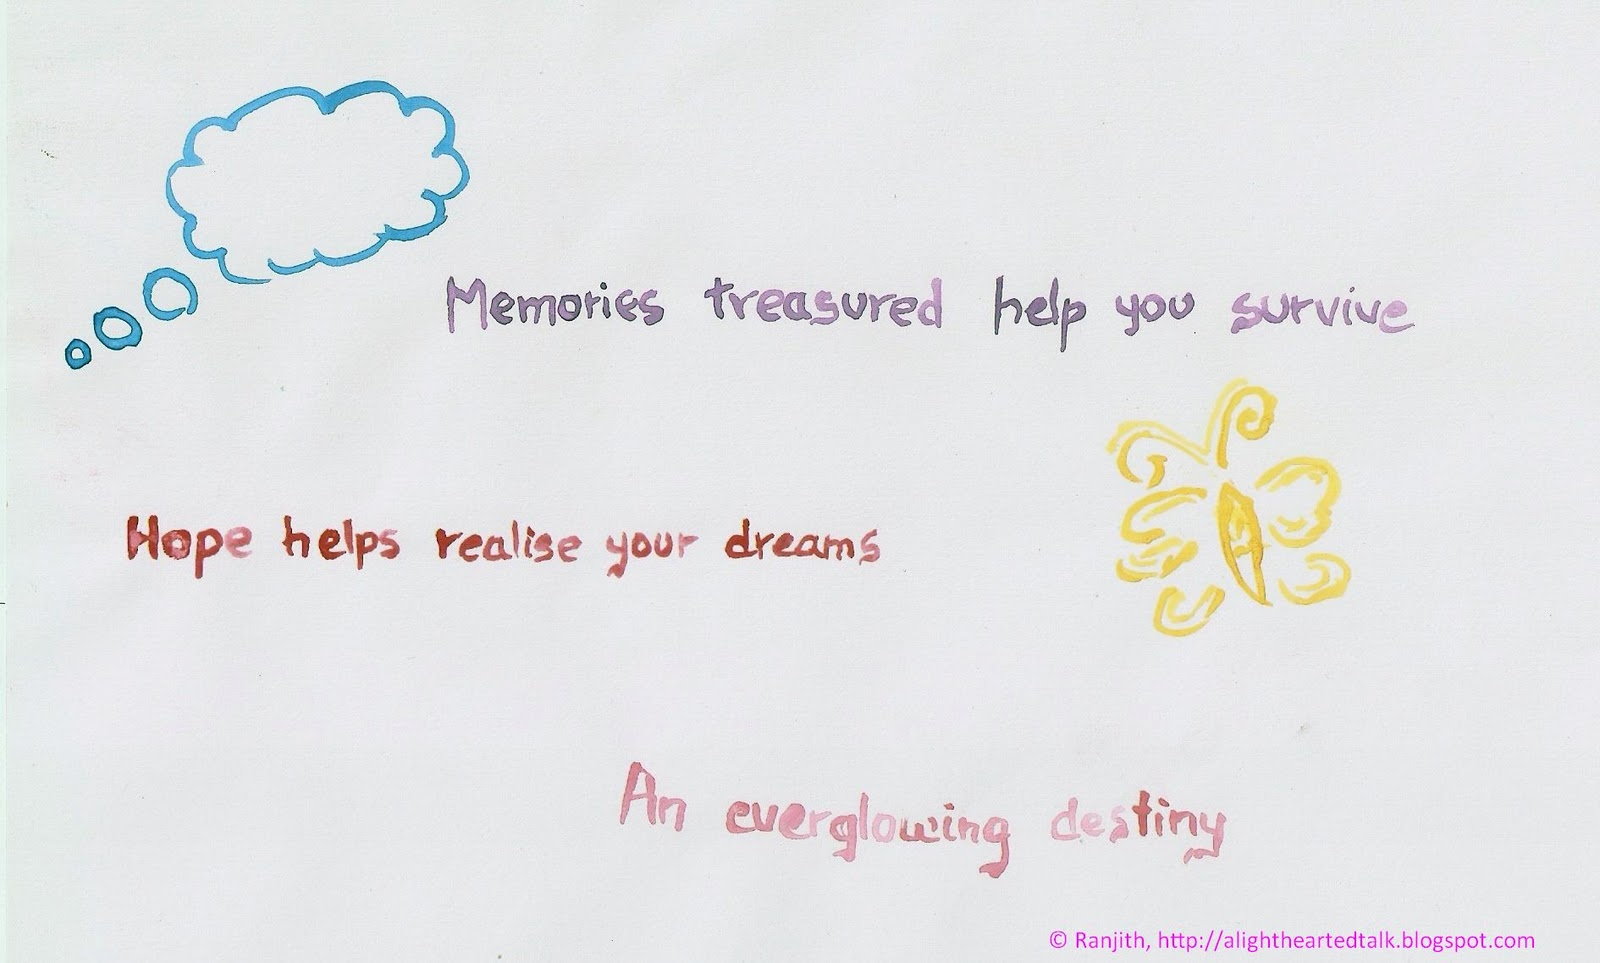 Memories treasured help you survive
Hope helps realise your dreams
An everglowing destiny
© Ranjith, http://alightheartedtalk.blogspot.com